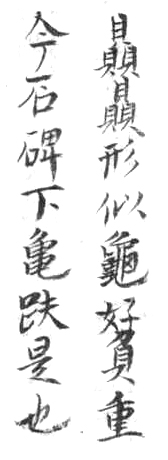 贔贔形似龜好負重
今石碑下亀趺是也